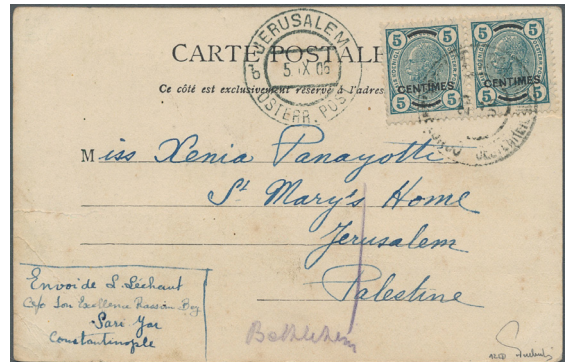 CARTE POSTALE
Ce côté est exclusivement réservé à l'adres
JERUSALEM
5 IX 06
ÖSTERR. POST
5 5
CENTIMES
5 5
5 5
CENTIMES
5 5
Miss Xenia Panayotti
St Mary's Home
Jerusalem
Palestine
Envoi de L. Léchaut
c/o Son Excellence Hussein Bey
Sari Yar
Constantinople
Bethlehem